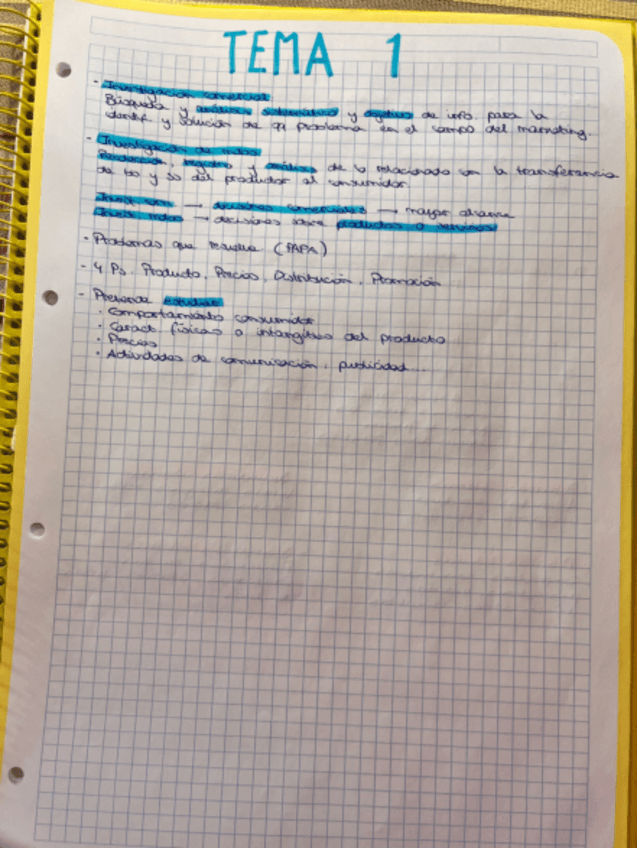 TEMA 1
- Investigación comercial
Búsqueda y análisis sistemático y objetivo de info. para la
identif. y solución de problema en el campo del marketing.
- Investigación de mdos
Recolección, registro y análisis de lo relacionado con la transferencia
de bs y ss del productor al consumidor.
Invest. com → decisiones comerciales → mayor alcance
Invest. mdos → decisiones sobre productos o servicios
- Problemas que resuelve (PAPA)
- 4 Ps. Producto, Precios, Distribución, Promoción
- Pretende estudiar
· Comportamiento consumidor
· Caract. físicas o intangibles del producto
· Precios
· Actividades de comunicación, publicidad...